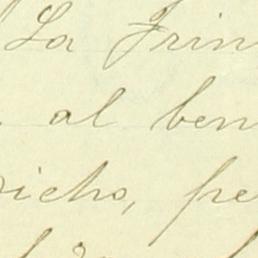 La Trin
al ben
icho, pe